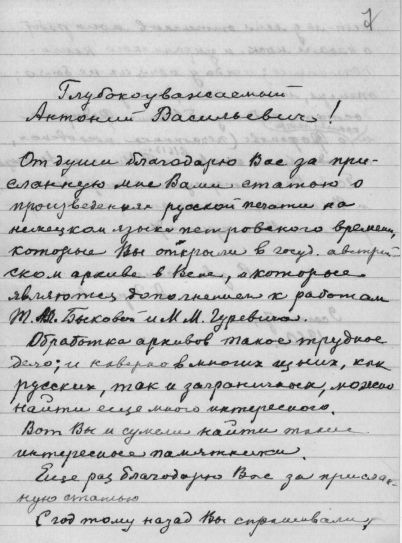 1
Глубокоуважаемый
Антоний Васильевич!
От души благодарю Вас за при-
сланную мне Вами статью о
произведениях русской печати на
немецком языке петровского времени,
которые Вы открыли в госуд. австрий-
ском архиве в Вене, и которые
являются дополнением к работам
Т. А. Быковой и М. М. Гуревича.
Обработка архивов такое трудное
дело; и наверно в многих из них, как
русских, так и заграничных, можно
найти еще много интересного.
Вот Вы и сумели найти такие
интересные памятники.
Еще раз благодарю Вас за прислан-
ную статью
С год тому назад Вы спрашивали,